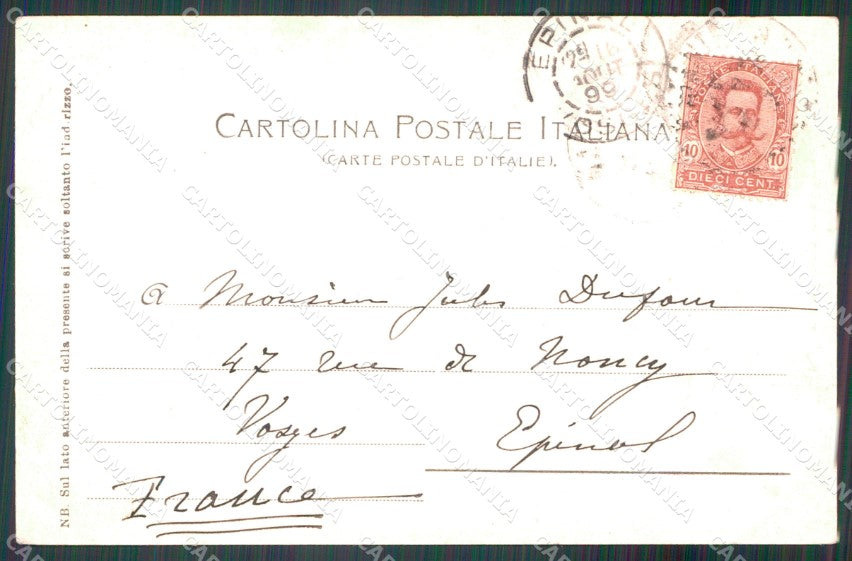 EPINAL
29 AOUT 99
CARTOLINA POSTALE ITALIANA
(CARTE POSTALE D'ITALIE).
POSTE ITALIANE
10 10
DIECI CENT.
à Monsieur Jules Dufour
47 rue de Nancy
Vosges Epinal
France
NB. Sul lato anteriore della presente si scrive soltanto l'indirizzo.
CARTOLINOMANIA